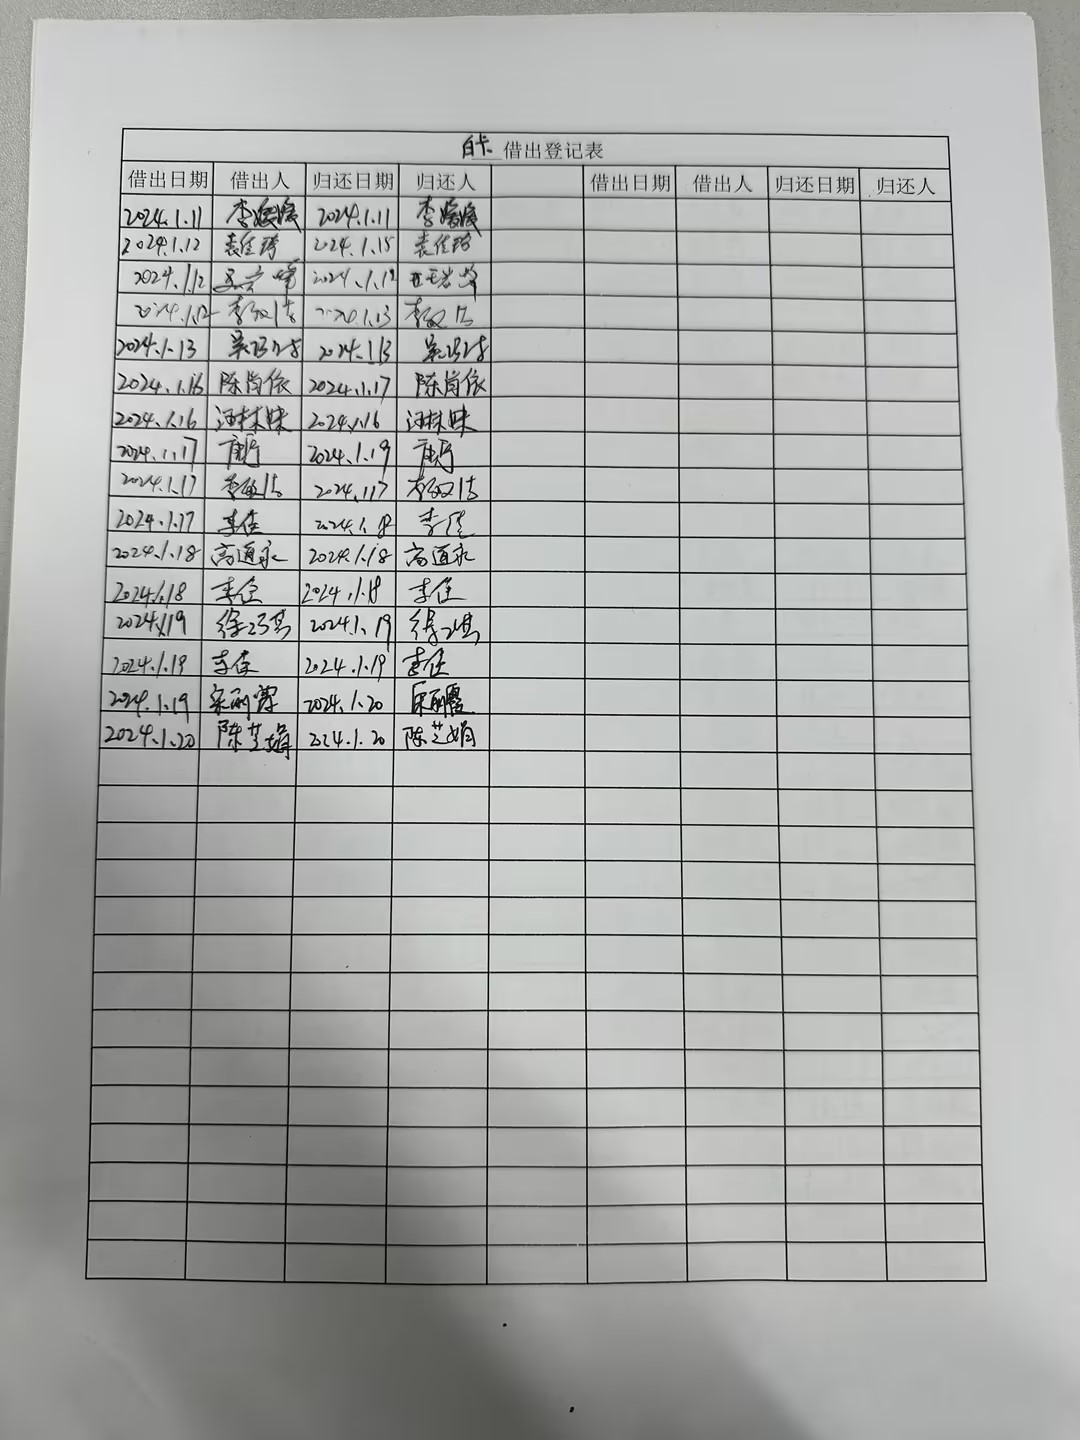 白卡 借出登记表
借出日期 借出人 归还日期 归还人 借出日期 借出人 归还日期 归还人
2024.1.11 李媛媛 2024.1.11 李媛媛
2024.1.12 袁佳琦 2024.1.15 袁佳琦
2024.1.12 2024.1.12
2024.1.12 李敏洁 2024.1.13 李敏洁
2024.1.13 吴巧洁 2024.1.13 吴巧洁
2024.1.16 陈岗依 2024.1.17 陈岗依
2024.1.16 汪林妹 2024.1.16 汪林妹
2024.1.17 唐宁 2024.1.19 唐宁
2024.1.17 李敏洁 2024.1.17 李敏洁
2024.1.17 李佳 2024.1.18 李佳
2024.1.18 高通永 2024.1.18 高通永
2024.1.18 李佳 2024.1.18 李佳
2024.1.19 徐巧其 2024.1.19 徐巧其
2024.1.19 李佳 2024.1.19 李佳
2024.1.19 宋丽霞 2024.1.20 宋丽霞
2024.1.20 陈芝娟 2024.1.20 陈芝娟